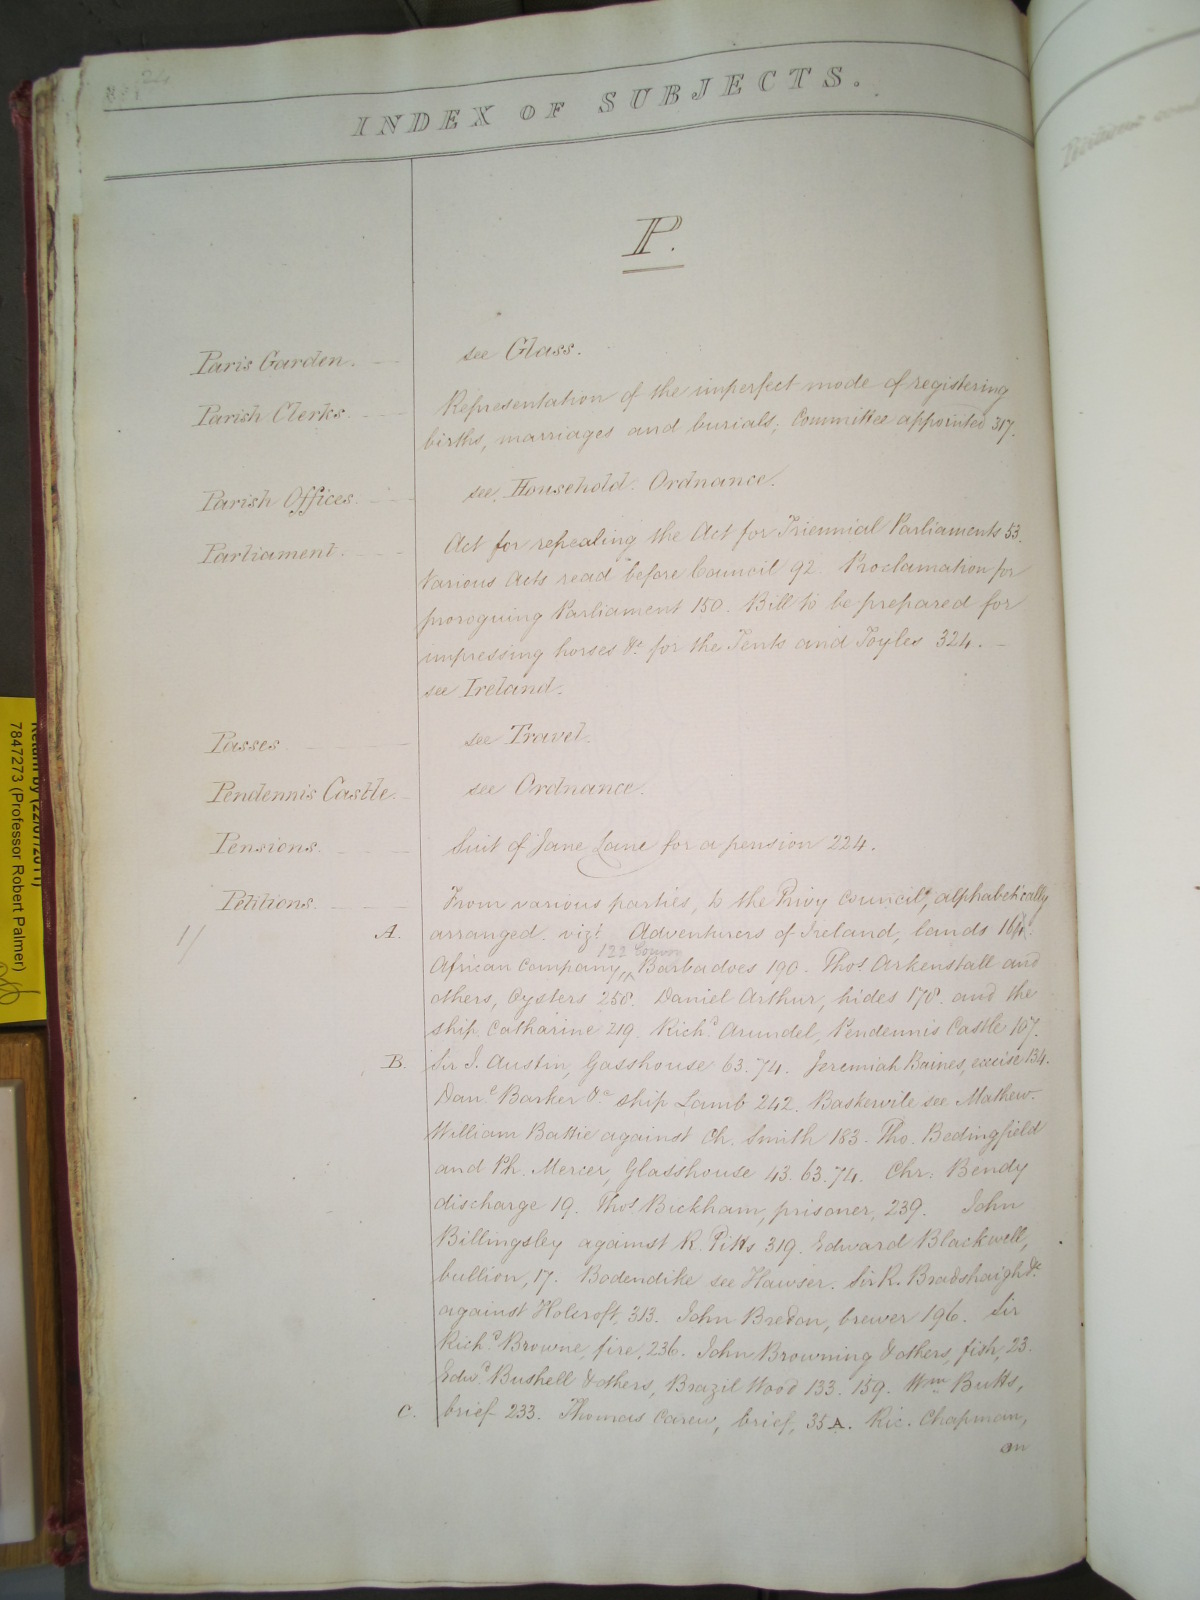 INDEX OF SUBJECTS.
P.
Paris Garden. see Glass.
Parish Clerks. Representation of the imperfect mode of registering
births, marriages and burials; Committee appointed 317.
Parish Offices. see Household. Ordnance.
Parliament. Act for repealing the Act for Triennial Parliaments 53.
Various Acts read before Council 92. Proclamation for
proroguing Parliament 150. Bill to be prepared for
impressing horses &c for the Tents and Toyles 324. –
see Ireland.
Passes see Travel.
Pendennis Castle. see Ordnance.
Pensions. Suit of Jane Lane for a pension 224.
Petitions. From various parties, to the Privy Council, alphabetically
1/ A. arranged. vizt Adventurers of Ireland, lands 164.
122
African Company, Barbadoes 190. Thos Arkenstall and
others, Oysters 258. Daniel Arthur, hides 178. and the
ship Catharine 219. Richd Arundel, Pendennis Castle 107.
B. Sir J. Austin, Glasshouse 63. 74. Jeremiah Baines, excise 134.
Danl Barker &c ship Lamb 242. Baskervile see Mathew.
William Battie against Ch. Smith 183. Tho. Bedingfield
and Ph. Mercer, Glasshouse 43. 63. 74. Chr: Bendy
discharge 19. Thos Bickham, prisoner, 239. John
Billingsley against R. Pitts 319. Edward Blackwell,
bullion, 17. Bodendike see Hawser. Sir R. Bradshaigh &c
against Holcroft, 313. John Bredon, brewer 196. Sir
Richd Browne, fire, 236. John Browning & others, fish, 23.
Edwd Bushell & others, Brazil Wood 133. 159. Wm Butts,
C. brief 233. Thomas Carew, brief, 35 A. Ric. Chapman,
an
Petitions
Return by (22/07/2011)
7847273 (Professor Robert Palmer)